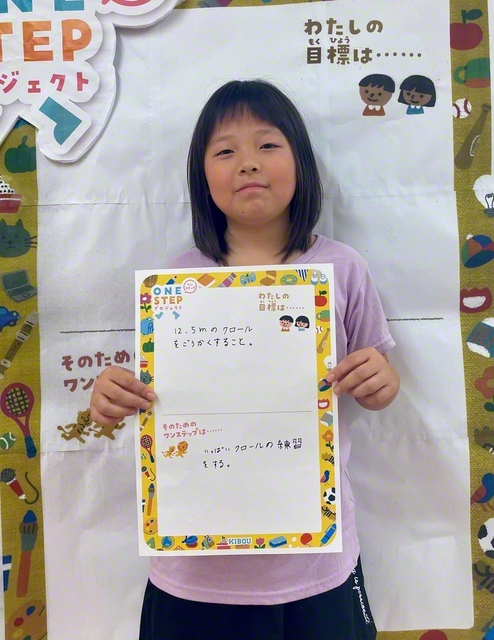 ONE
STEP
ジェクト
わたしの
もく ひょう
目標は……
そのため
ワン
ONE
STEP
プロジェクト
わたしの
もくひょう
目標は……
12.5mのクロール
をごうかくすること。
そのための
ワンステップは……
いっぱいクロールの練習
をする。
KIBOU